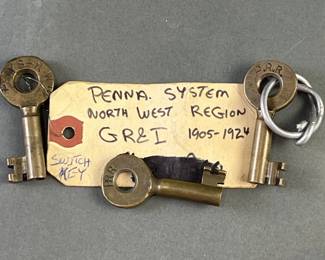 PENNA. SYSTEM
NORTH WEST REGION
GR&I 1905-1924
SWITCH
KEY